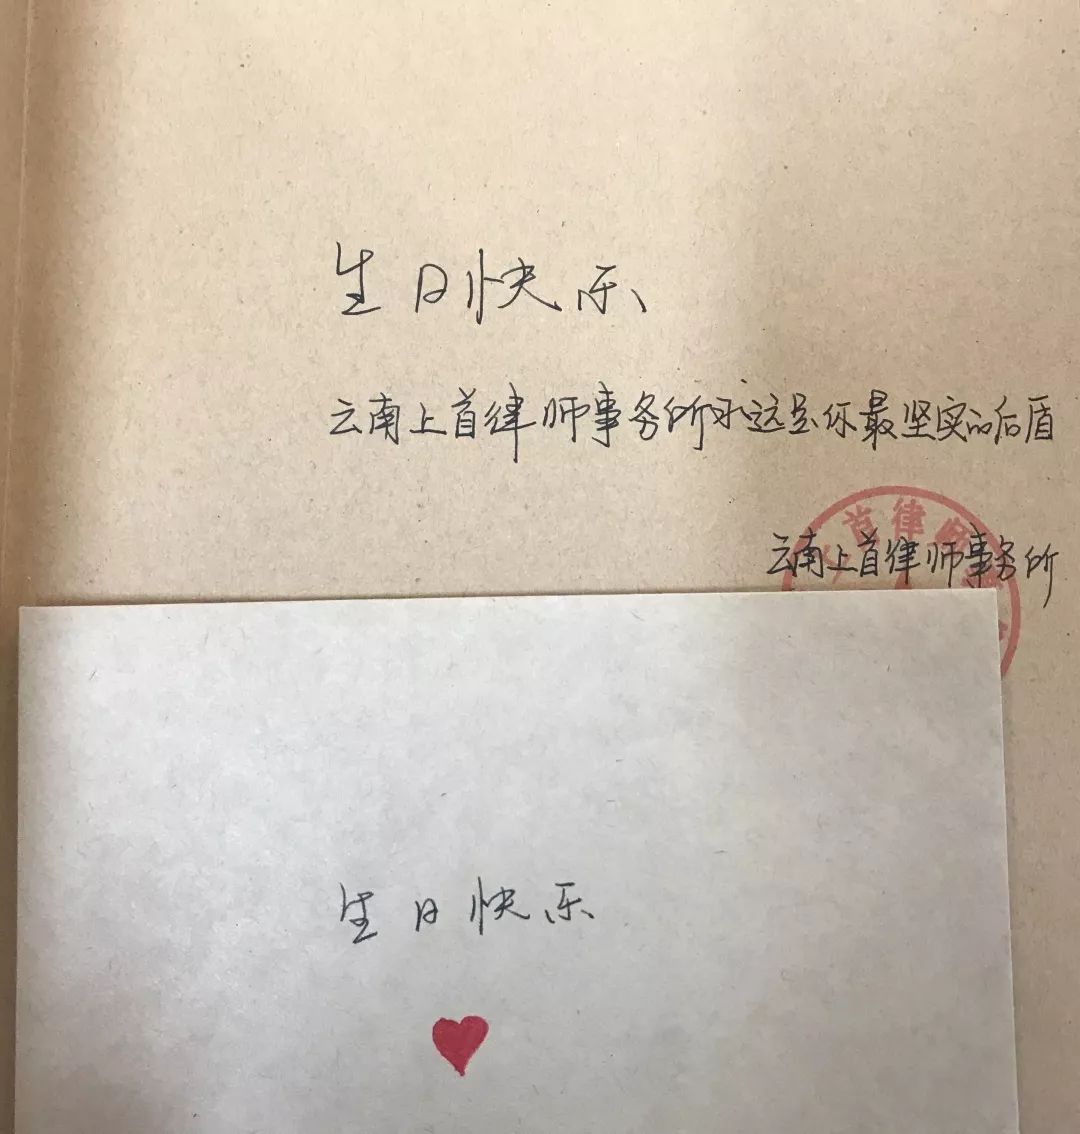 生日快乐
云南上首律师事务所永远是你最坚实的后盾
云南上首律师事务所
首律师
生日快乐